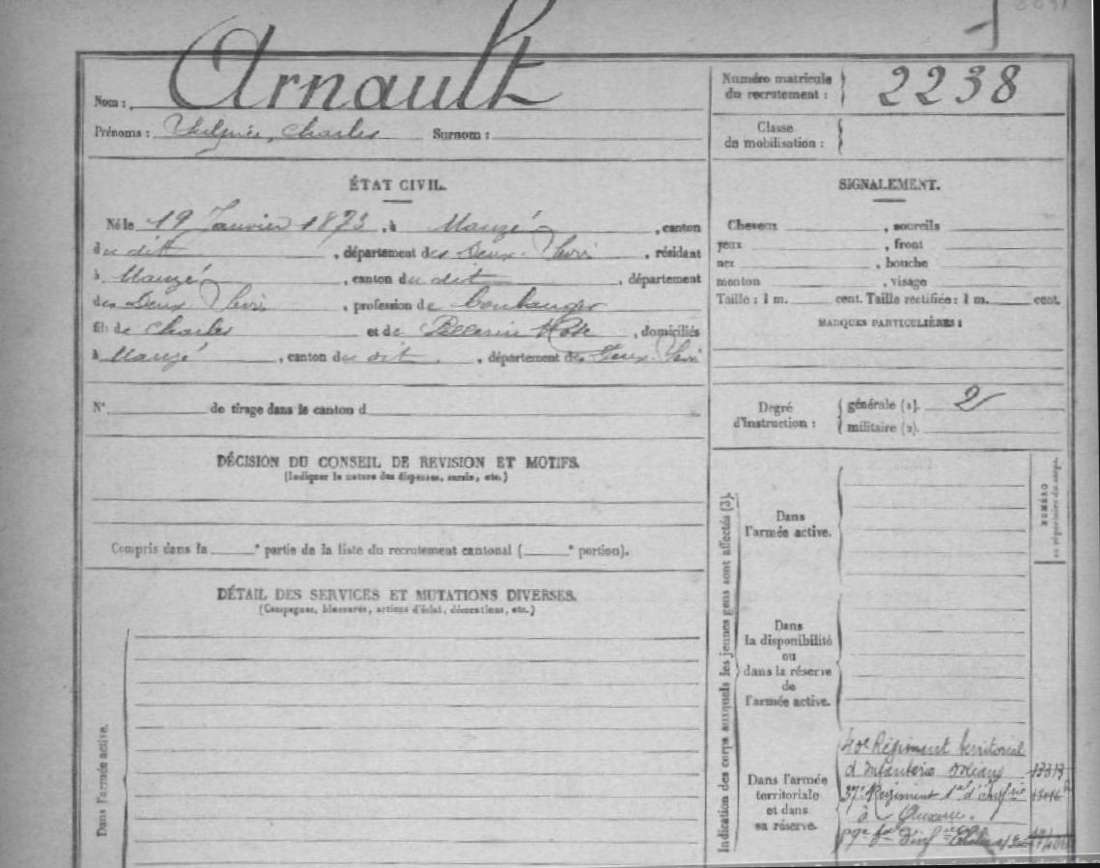 Nom : Arnault
Prénoms : Sulpice, Charles Surnom :
Numéro matricule
du recrutement : 2238
Classe
de mobilisation :
ÉTAT CIVIL.
Né le 19 Janvier 1873, à Mauzé, canton
du dit, département des Deux-Sèvres, résidant
à Mauzé, canton du dit, département
des Deux Sèvres, profession de boulanger
fils de Charles et de Rose, domiciliés
à Mauzé, canton du dit, département des Deux-Sèvres
N° de tirage dans le canton d
DÉCISION DU CONSEIL DE REVISION ET MOTIFS.
(Indiquer la nature des dispenses, sursis, etc.)
Compris dans la e partie de la liste du recrutement cantonal ( e portion).
DÉTAIL DES SERVICES ET MUTATIONS DIVERSES.
(Campagnes, blessures, actions d'éclat, décorations, etc.)
Dans l'armée active.
SIGNALEMENT.
Cheveux , sourcils
yeux , front
nez , bouche
menton , visage
Taille : 1 m. cent. Taille rectifiée : 1 m. cent.
MARQUES PARTICULIÈRES :
Degré
d'instruction :
générale (1). 2
militaire (2).
Indication des corps auxquels les jeunes gens sont affectés (3).
NUMÉRO
au répertoire du corps.
Dans
l'armée active.
Dans
la disponibilité
ou
dans la réserve
de
l'armée active.
Dans l'armée
territoriale
et dans
sa réserve.
40e Régiment territorial
d'Infanterie Orléans
37e Régiment tal d'Infrie
à Auxerre.